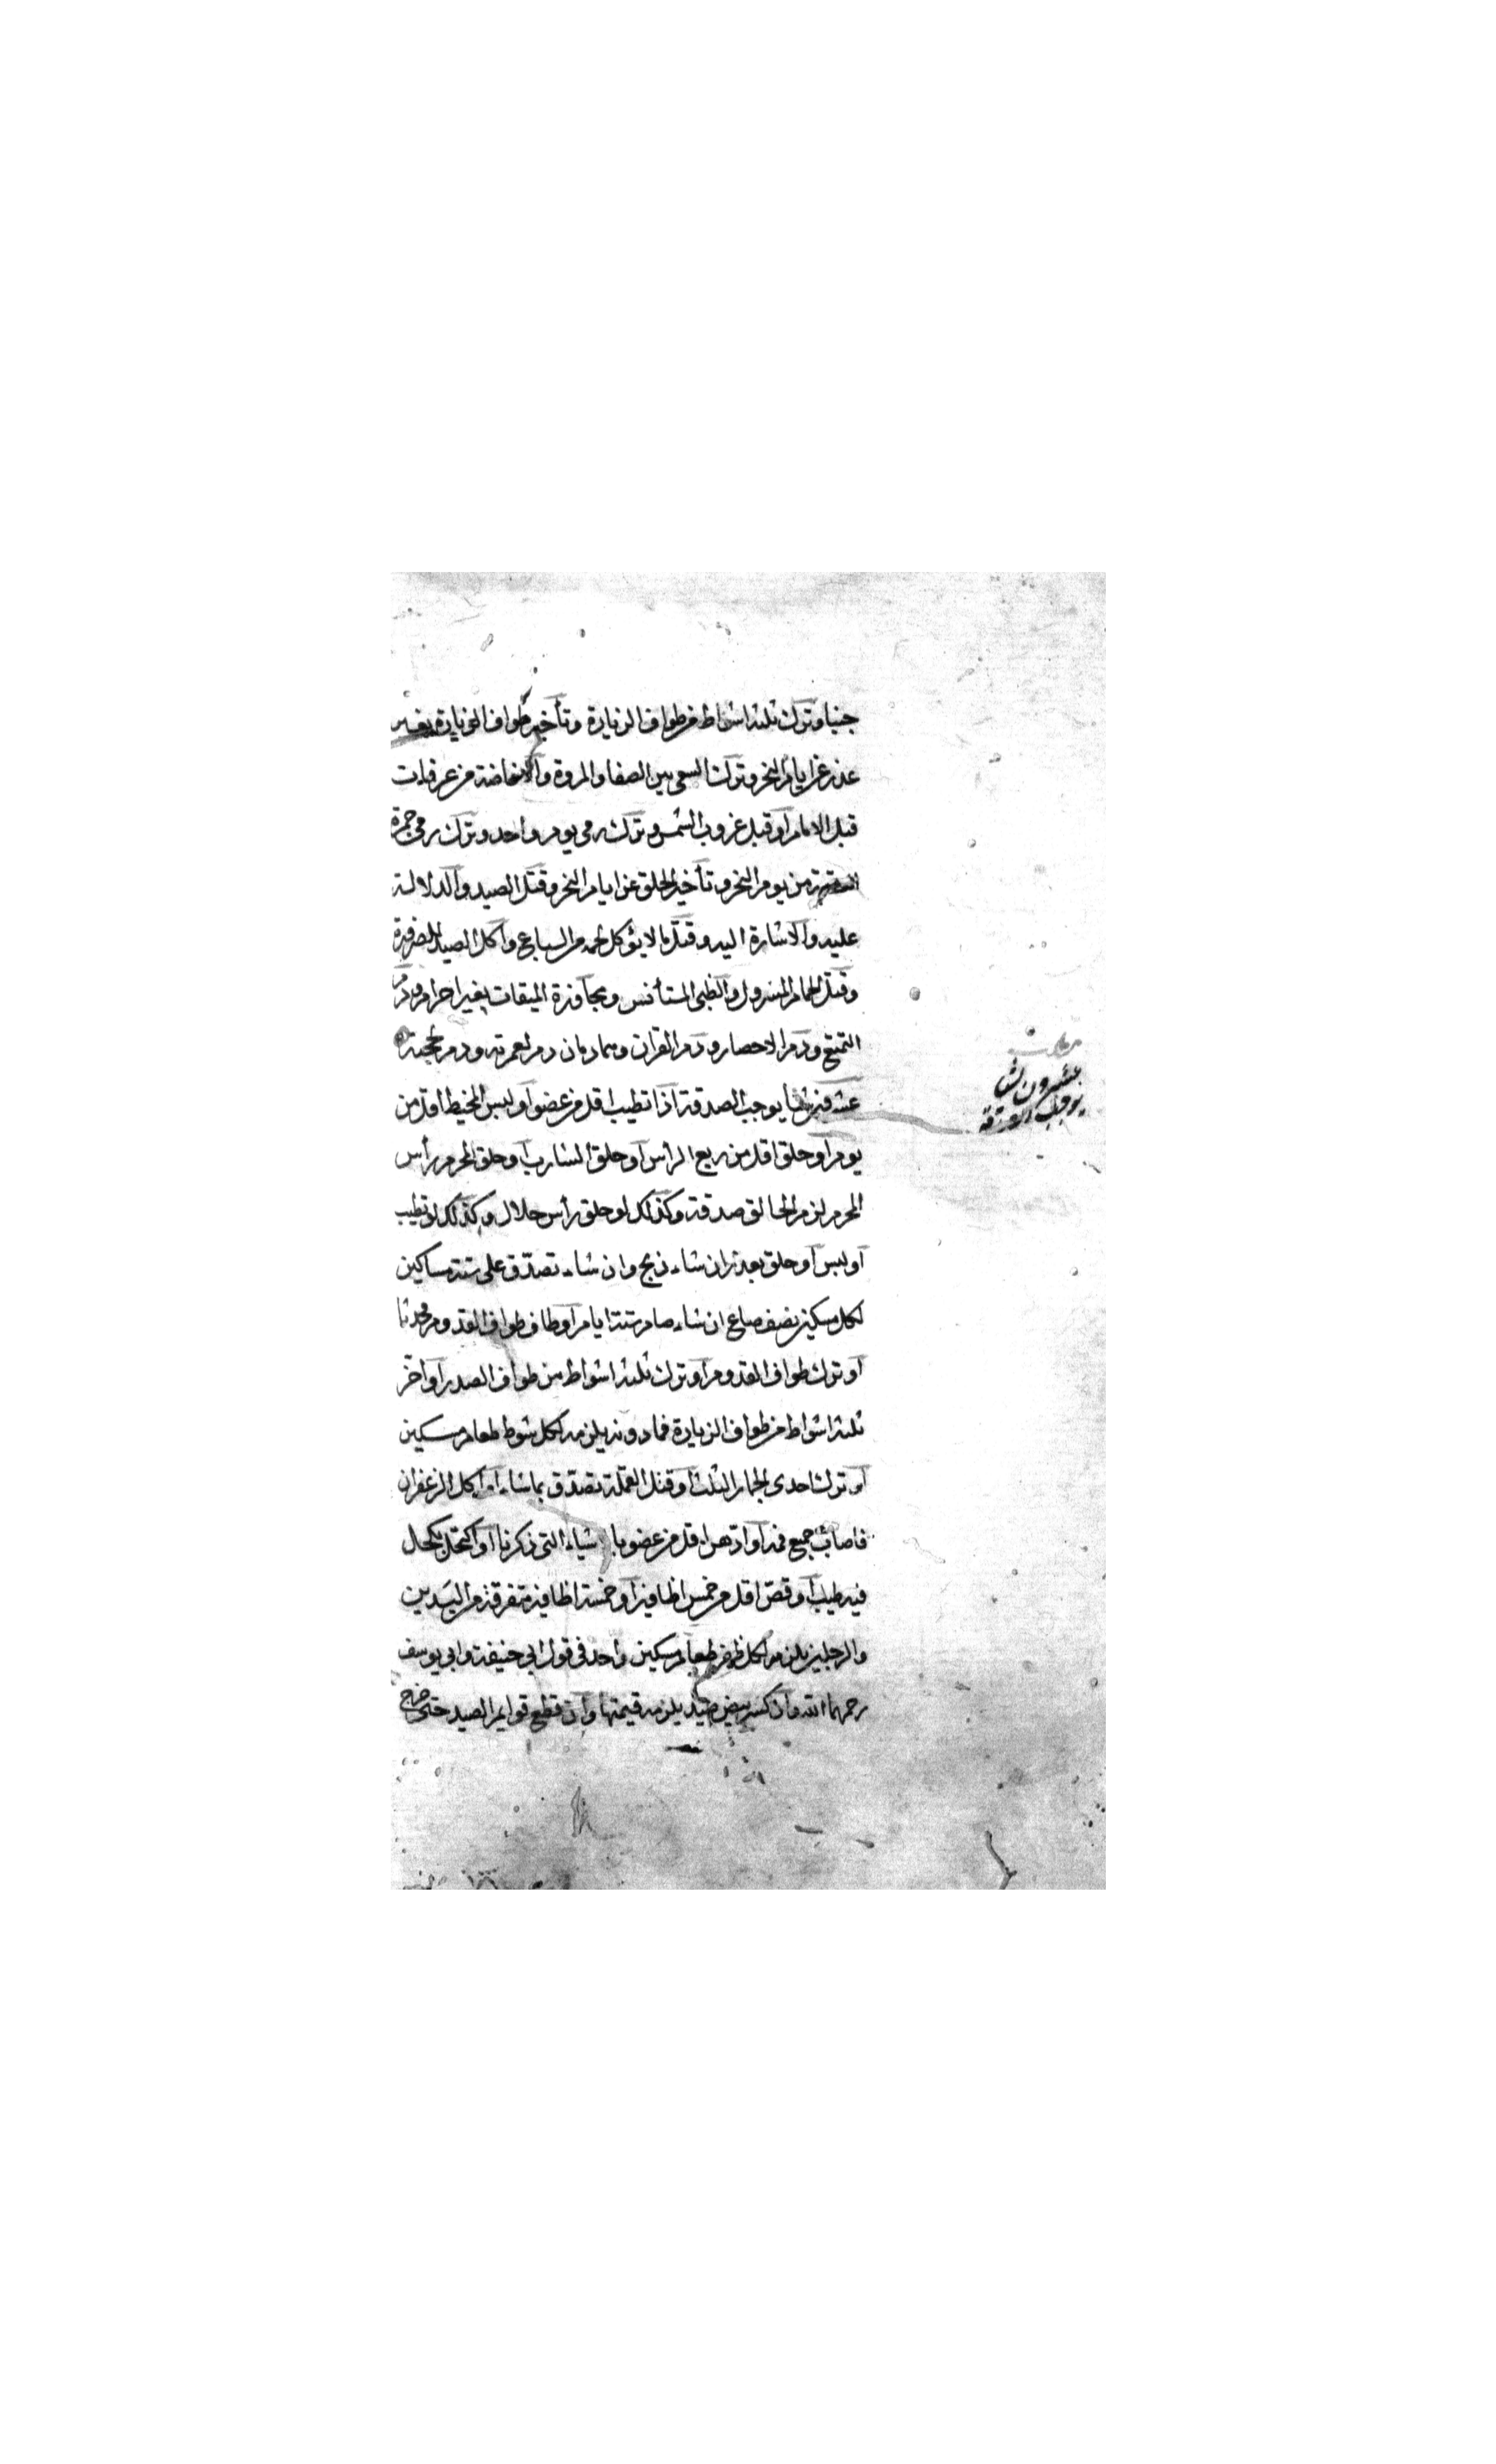 جنبا وترك ثلثة اشواط من طواف الزيارة وتأخير طواف الزيارة بغير
عذر عن ايام النحر وترك السعى بين الصفا والمروة والافاضة من عرفات
قبل الامام او قبل غروب الشمس وترك رمى يوم واحد وترك رمى جمرة
العقبة من يوم النحر وتأخير الحلق عن ايام النحر وقتل الصيد والدلالة
عليه والاشارة اليه وقتل ما لا يؤكل لحمه من السباع واكل الصيد
وقتل الحمام المسرول والظبى المستأنس ومجاوزة الميقات بغير احرام ودم
التمتع ودم الاحصار ودم القران وهما دمان دم لعمرته ودم لحجته
عشرون شيا يوجب الصدقة اذا تطيب اقل من عضو او لبس المخيط اقل من
يوم او حلق اقل من ربع الرأس او حلق الشارب او حلق المحرم رأس
المحرم لزم الحالق صدقة وكذلك لو حلق رأس حلال وكذلك لو تطيب
او لبس او حلق بعذر ان شاء ذبح وان شاء تصدّق على ستة مساكين
لكل مسكين نصف صاع ان شاء صام ستة ايام او طاف طواف القدوم محدثا
او ترك طواف القدوم او ترك ثلثة اشواط من طواف الصدر او اخّر
ثلثة اشواط من طواف الزيارة فما دونه يلزمه لكل شوط طعام مسكين
او ترك احدى الجمار الثلث او قتل القملة تصدّق بما شاء او اكل الزعفران
فاصاب جميع فمه او ادّهن اقل من عضو بالاشياء التى ذكرنا او اكتحل بكحل
فيه طيب او قصّ اقل من خمس اظافير او خمسة اظافير متفرقة من اليدين
والرجلين يلزمه لكل ظفر طعام مسكين واحد فى قول ابى حنيفة وابى يوسف
رحمهما الله وان كسر بيض صيد يلزمه قيمتها وان قطع قوايم الصيد حتى خرج
عشرون شيا
يوجب الصدقة